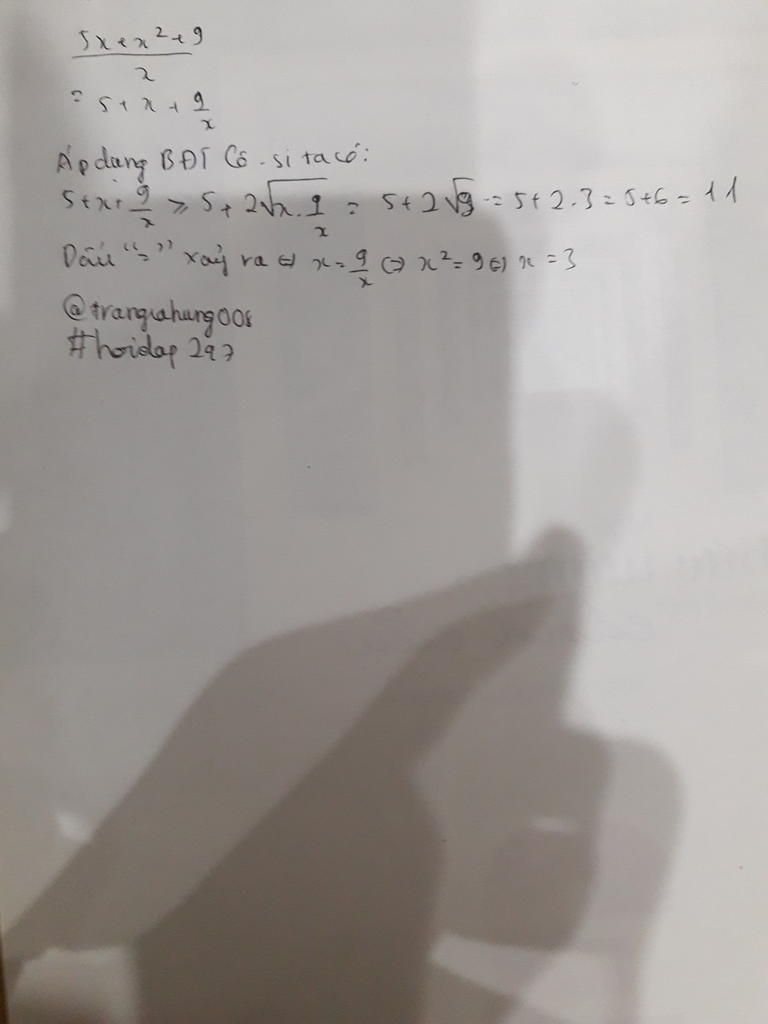 5x + x² + 9
x
= 5 + x + 9/x
Áp dụng BĐT Cô-si ta có:
5 + x + 9/x ≥ 5 + 2√(x . 9/x) = 5 + 2√9 = 5 + 2.3 = 5 + 6 = 11
Dấu "=" xảy ra ⇔ x = 9/x ⇔ x² = 9 ⇔ x = 3
@trangiahung008
#hoidap247